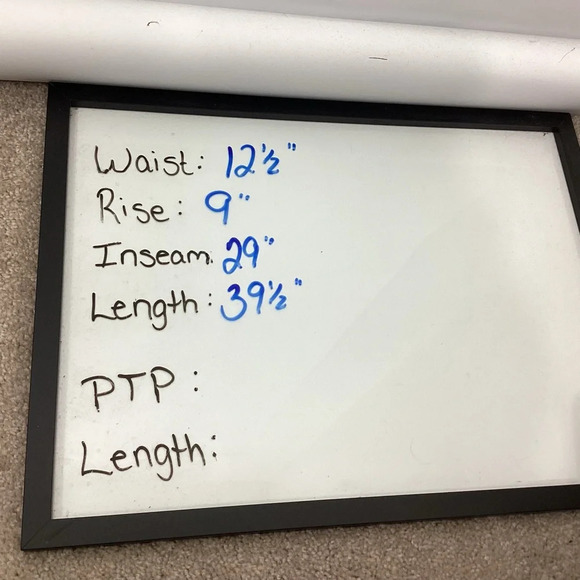 Waist: 12½"
Rise: 9"
Inseam: 29"
Length: 39½"
PTP:
Length: